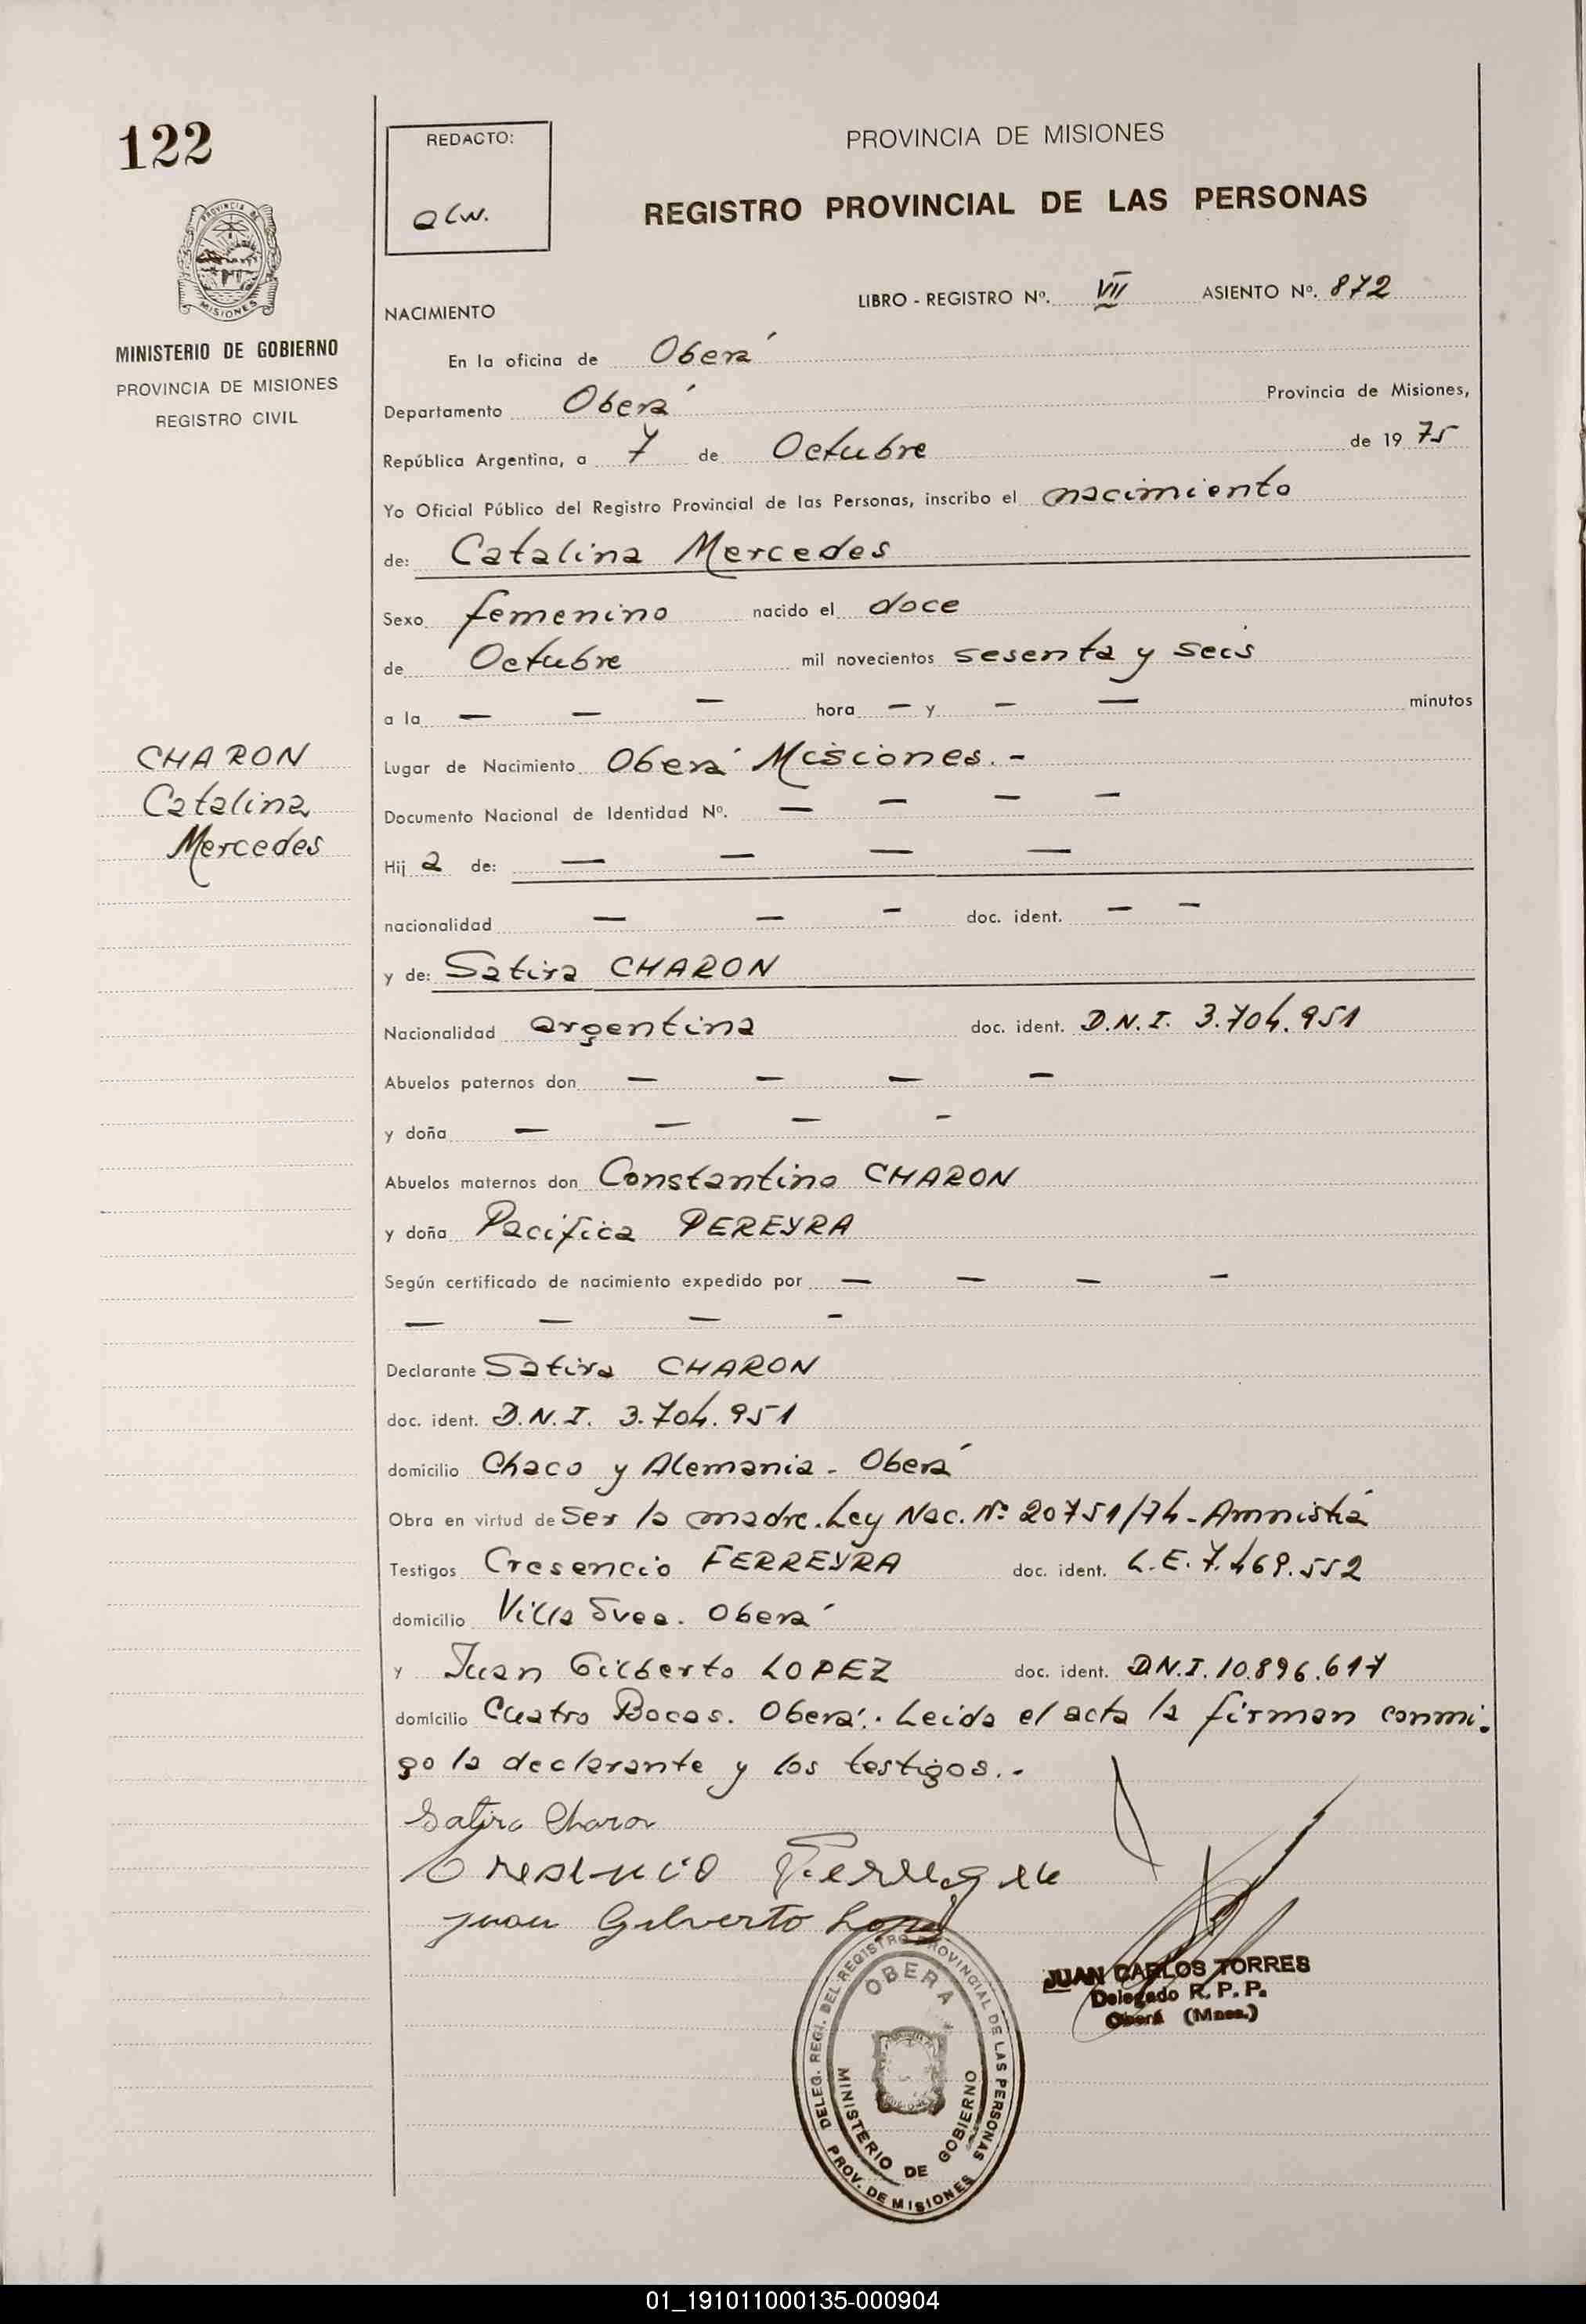 122
REDACTO:
alw.
PROVINCIA DE MISIONES
REGISTRO PROVINCIAL DE LAS PERSONAS
PROVINCIA DE
MISIONES
MINISTERIO DE GOBIERNO
PROVINCIA DE MISIONES
REGISTRO CIVIL
LIBRO - REGISTRO Nº. VII ASIENTO Nº. 872
NACIMIENTO
En la oficina de Oberá
Departamento Oberá Provincia de Misiones,
República Argentina, a 7 de Octubre de 1975
Yo Oficial Público del Registro Provincial de las Personas, inscribo el nacimiento
de: Catalina Mercedes
Sexo femenino nacido el doce
de Octubre mil novecientos sesenta y seis
a la — — — hora — y — — minutos
CHARON
Catalina
Mercedes
Lugar de Nacimiento Oberá Misiones.-
Documento Nacional de Identidad Nº. — — — —
Hija de: — — — —
nacionalidad — — — doc. ident. — —
y de: Satira CHARON
Nacionalidad argentina doc. ident. D.N.I. 3.704.951
Abuelos paternos don — — — —
y doña — — — -
Abuelos maternos don Constantino CHARON
y doña Pacifica PEREYRA
Según certificado de nacimiento expedido por — — — -
— — — -
Declarante Satira CHARON
doc. ident. D.N.I. 3.704.951
domicilio Chaco y Alemania - Oberá
Obra en virtud de ser la madre. Ley Nac. Nº 20751/74 - Amnistía
Testigos Cresencio FERREYRA doc. ident. L.E. 7.469.552
domicilio Villa Svea. Oberá
y Juan Gilberto LOPEZ doc. ident. D.N.I. 10.896.617
domicilio Cuatro Bocas. Oberá.. Leida el acta la firman conmi-
go la declarante y los testigos.-
Satira Charon
Juan Gilverto Lopez
JUAN CARLOS TORRES
Delegado R. P. P.
Oberá (Mnes.)
DELEG. REGI. DEL REGISTRO PROVINCIAL DE LAS PERSONAS
OBERA
MINISTERIO DE GOBIERNO
PROV. DE MISIONES
01_191011000135-000904